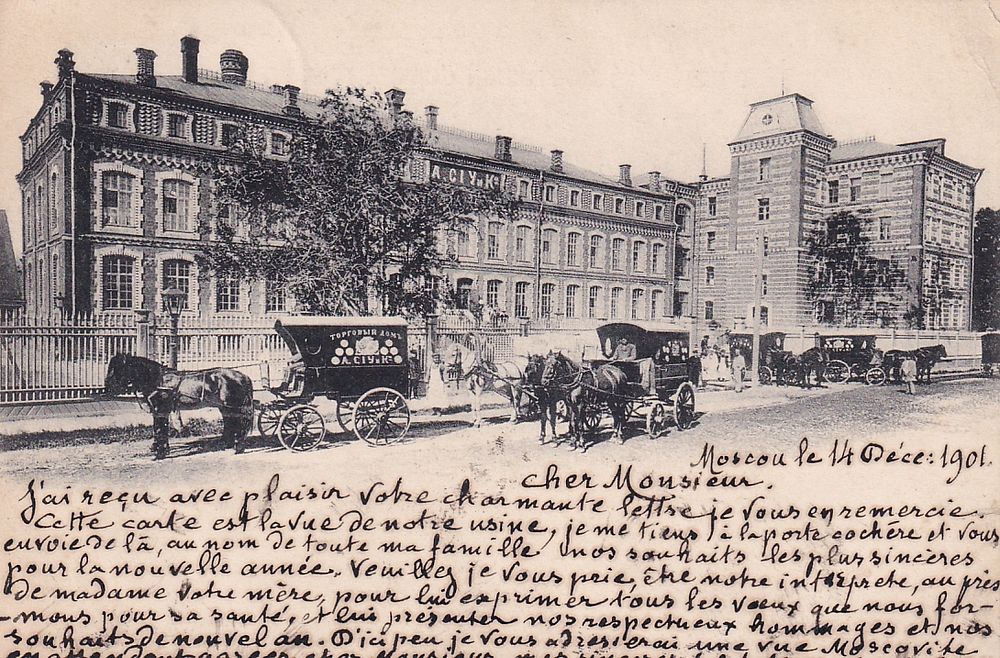 А. СІУ и К°
ТОРГОВЫЙ ДОМЪ
А. СІУ и К°
Moscou le 14 Déce: 1901.
cher Monsieur.
J'ai reçu avec plaisir votre charmante lettre je vous en remercie.
Cette carte est la vue de notre usine, je me tiens à la porte cochère et vous
envoie de là, au nom de toute ma famille nos souhaits les plus sincères
pour la nouvelle année. Veuillez je vous prie, être notre interprète, au près
de madame votre mère, pour lui exprimer tous les vœux que nous for-
-mons pour sa santé, et lui présenter nos respectueux hommages et nos
souhaits de nouvel an. D'ici peu je vous adresserai une vue Moscovite
en attendant agréez cher Monsieur mes